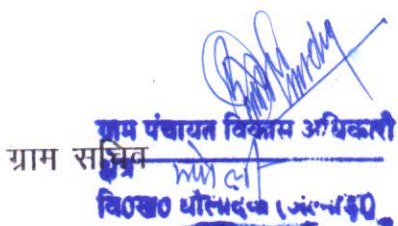 ग्राम पंचायत विकास अधिकारी
ग्राम सचिव
वि०ख० धौलादेवी (अल्मोड़ा)